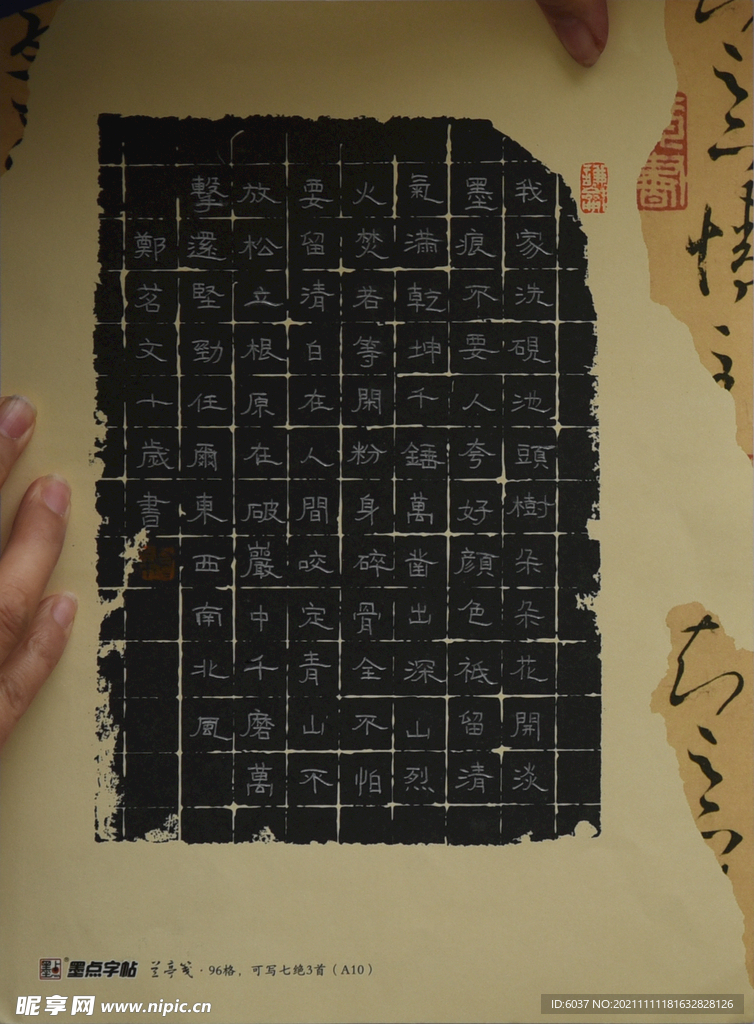 我家洗硯池頭樹朵朵花開淡
墨痕不要人夸好顔色祗留清
氣滿乾坤千錘萬凿出深山烈
火焚若等閑粉身碎骨全不怕
要留清白在人間咬定青山不
放松立根原在破巖中千磨萬
擊還堅勁任爾東西南北風
鄭茗文十歲書
墨点字帖 兰亭笺·96格，可写七绝3首（A10）
昵享网 www.nipic.cn
ID:6037 NO:20211111181632828126